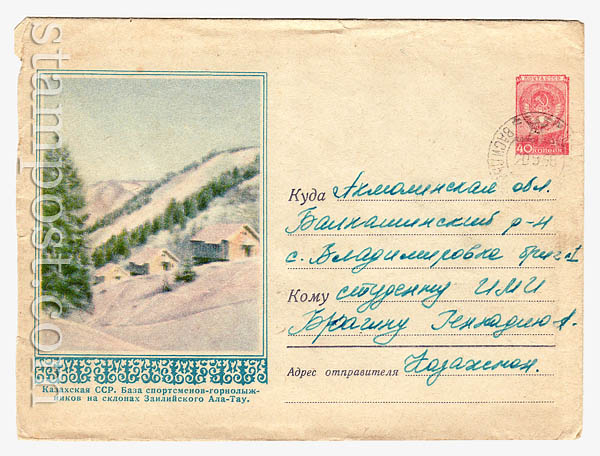 stampost.com
ПОЧТА СССР
40 КОПЕЕК
Куда Акмолинская обл.
Балкашинский р-н
с. Владимировка бриг. 1
Кому студенту
Брагину Геннадию А.
Адрес отправителя Казахстан.
Казахская ССР. База спортсменов-горнолыж-
ников на склонах Заилийского Ала-Тау.